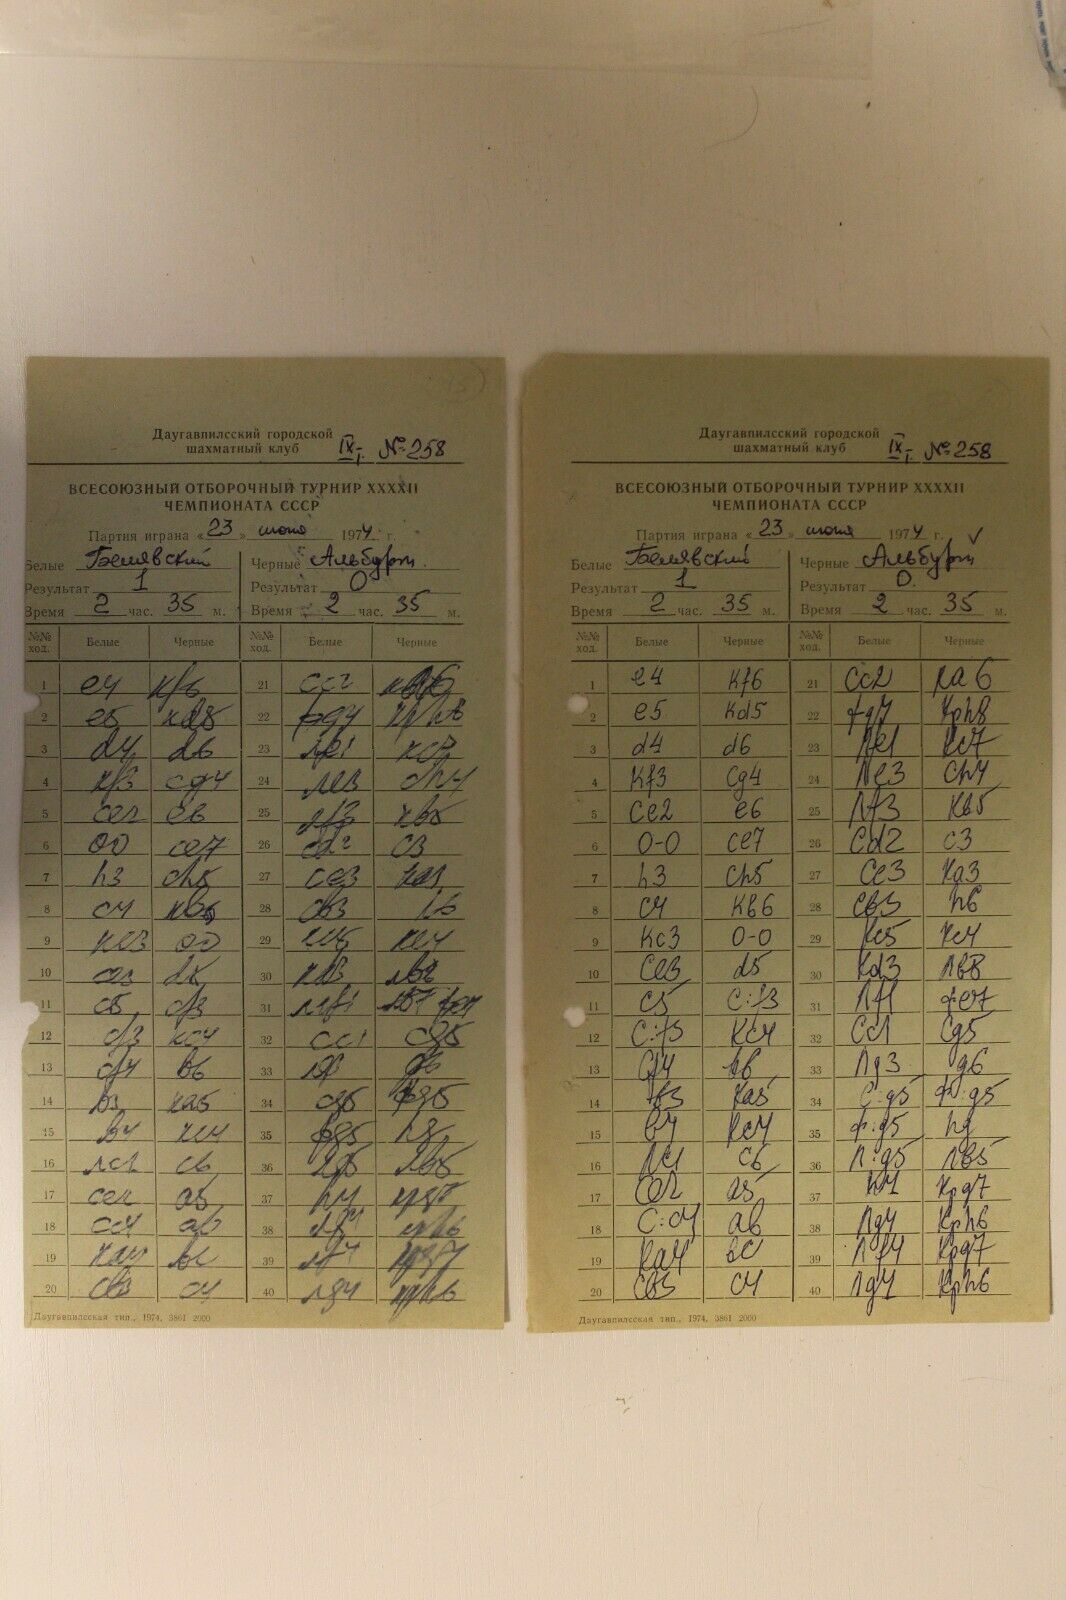 Даугавпилсский городской
шахматный клуб IX, № 258
ВСЕСОЮЗНЫЙ ОТБОРОЧНЫЙ ТУРНИР XXXXII
ЧЕМПИОНАТА СССР
Партия играна «23» июня 1974 г.
Белые Белявский Черные Альбурт.
Результат 1 Результат 0
Время 2 час. 35 м. Время 2 час. 35 м.
№№ ход. Белые Черные №№ ход. Белые Черные
1 e4 Kf6 21 Cc2
2 e5 Kd5 22 Фg4 Kph8
3 d4 d6 23 Лe1 Kc7
4 Kf3 Cg4 24 Лe3 Ch4
5 Ce2 e6 25 Лf3 Kb5
6 00 Ce7 26 Cd2 c3
7 h3 Ch5 27 Ce3 Ka3
8 c4 Kb6 28 Cb3 h6
9 Kc3 00 29 Kc5 Kc4
10 Ce3 d5 30 Kd3 Лb8
11 c5 Cf3 31 Лf1 Фe7
12 Cf3 Kc4 32 Cc1 Cg5
13 Cf4 b6 33 g6
14 b3 Ka5 34 Cg5 Фg5
15 b4 Kc4 35 Фg5 hg
16 Лc1 c6 36 Лg5 Лb5
17 Ce2 a5 37 h4 Kpg7
18 Cc4 ab 38 Лg4 Kph6
19 Ka4 bc 39 Лf4 Kpg7
20 Cb3 c4 40 Лg4 Kph6
Даугавпилсская тип., 1974, 3861 2000
Даугавпилсский городской
шахматный клуб IX, № 258
ВСЕСОЮЗНЫЙ ОТБОРОЧНЫЙ ТУРНИР XXXXII
ЧЕМПИОНАТА СССР
Партия играна «23» июня 1974 г.
Белые Белявский Черные Альбурт
Результат 1 Результат 0.
Время 2 час. 35 м. Время 2 час. 35 м.
№№ ход. Белые Черные №№ ход. Белые Черные
1 e4 Kf6 21 Cc2 Ka6
2 e5 Kd5 22 Фg4 Kph8
3 d4 d6 23 Лe1 Kc7
4 Kf3 Cg4 24 Лe3 Ch4
5 Ce2 e6 25 Лf3 Kb5
6 0-0 Ce7 26 Cd2 c3
7 h3 Ch5 27 Ce3 Ka3
8 c4 Kb6 28 Cb3 h6
9 Kc3 0-0 29 Kc5 Kc4
10 Ce3 d5 30 Kd3 Лb8
11 c5 C:f3 31 Лf1 Фe7
12 C:f3 Kc4 32 Cc1 Cg5
13 Cf4 b6 33 Лg3 g6
14 b3 Ka5 34 C:g5 Ф:g5
15 b4 Kc4 35 Ф:g5 hg
16 Лc1 c6 36 Л:g5 Лb5
17 Ce2 a5 37 h4 Kpg7
18 C:c4 ab 38 Лg4 Kph6
19 Ka4 bc 39 Лf4 Kpg7
20 Cb3 c4 40 Лg4 Kph6
Даугавпилсская тип., 1974, 3861 2000